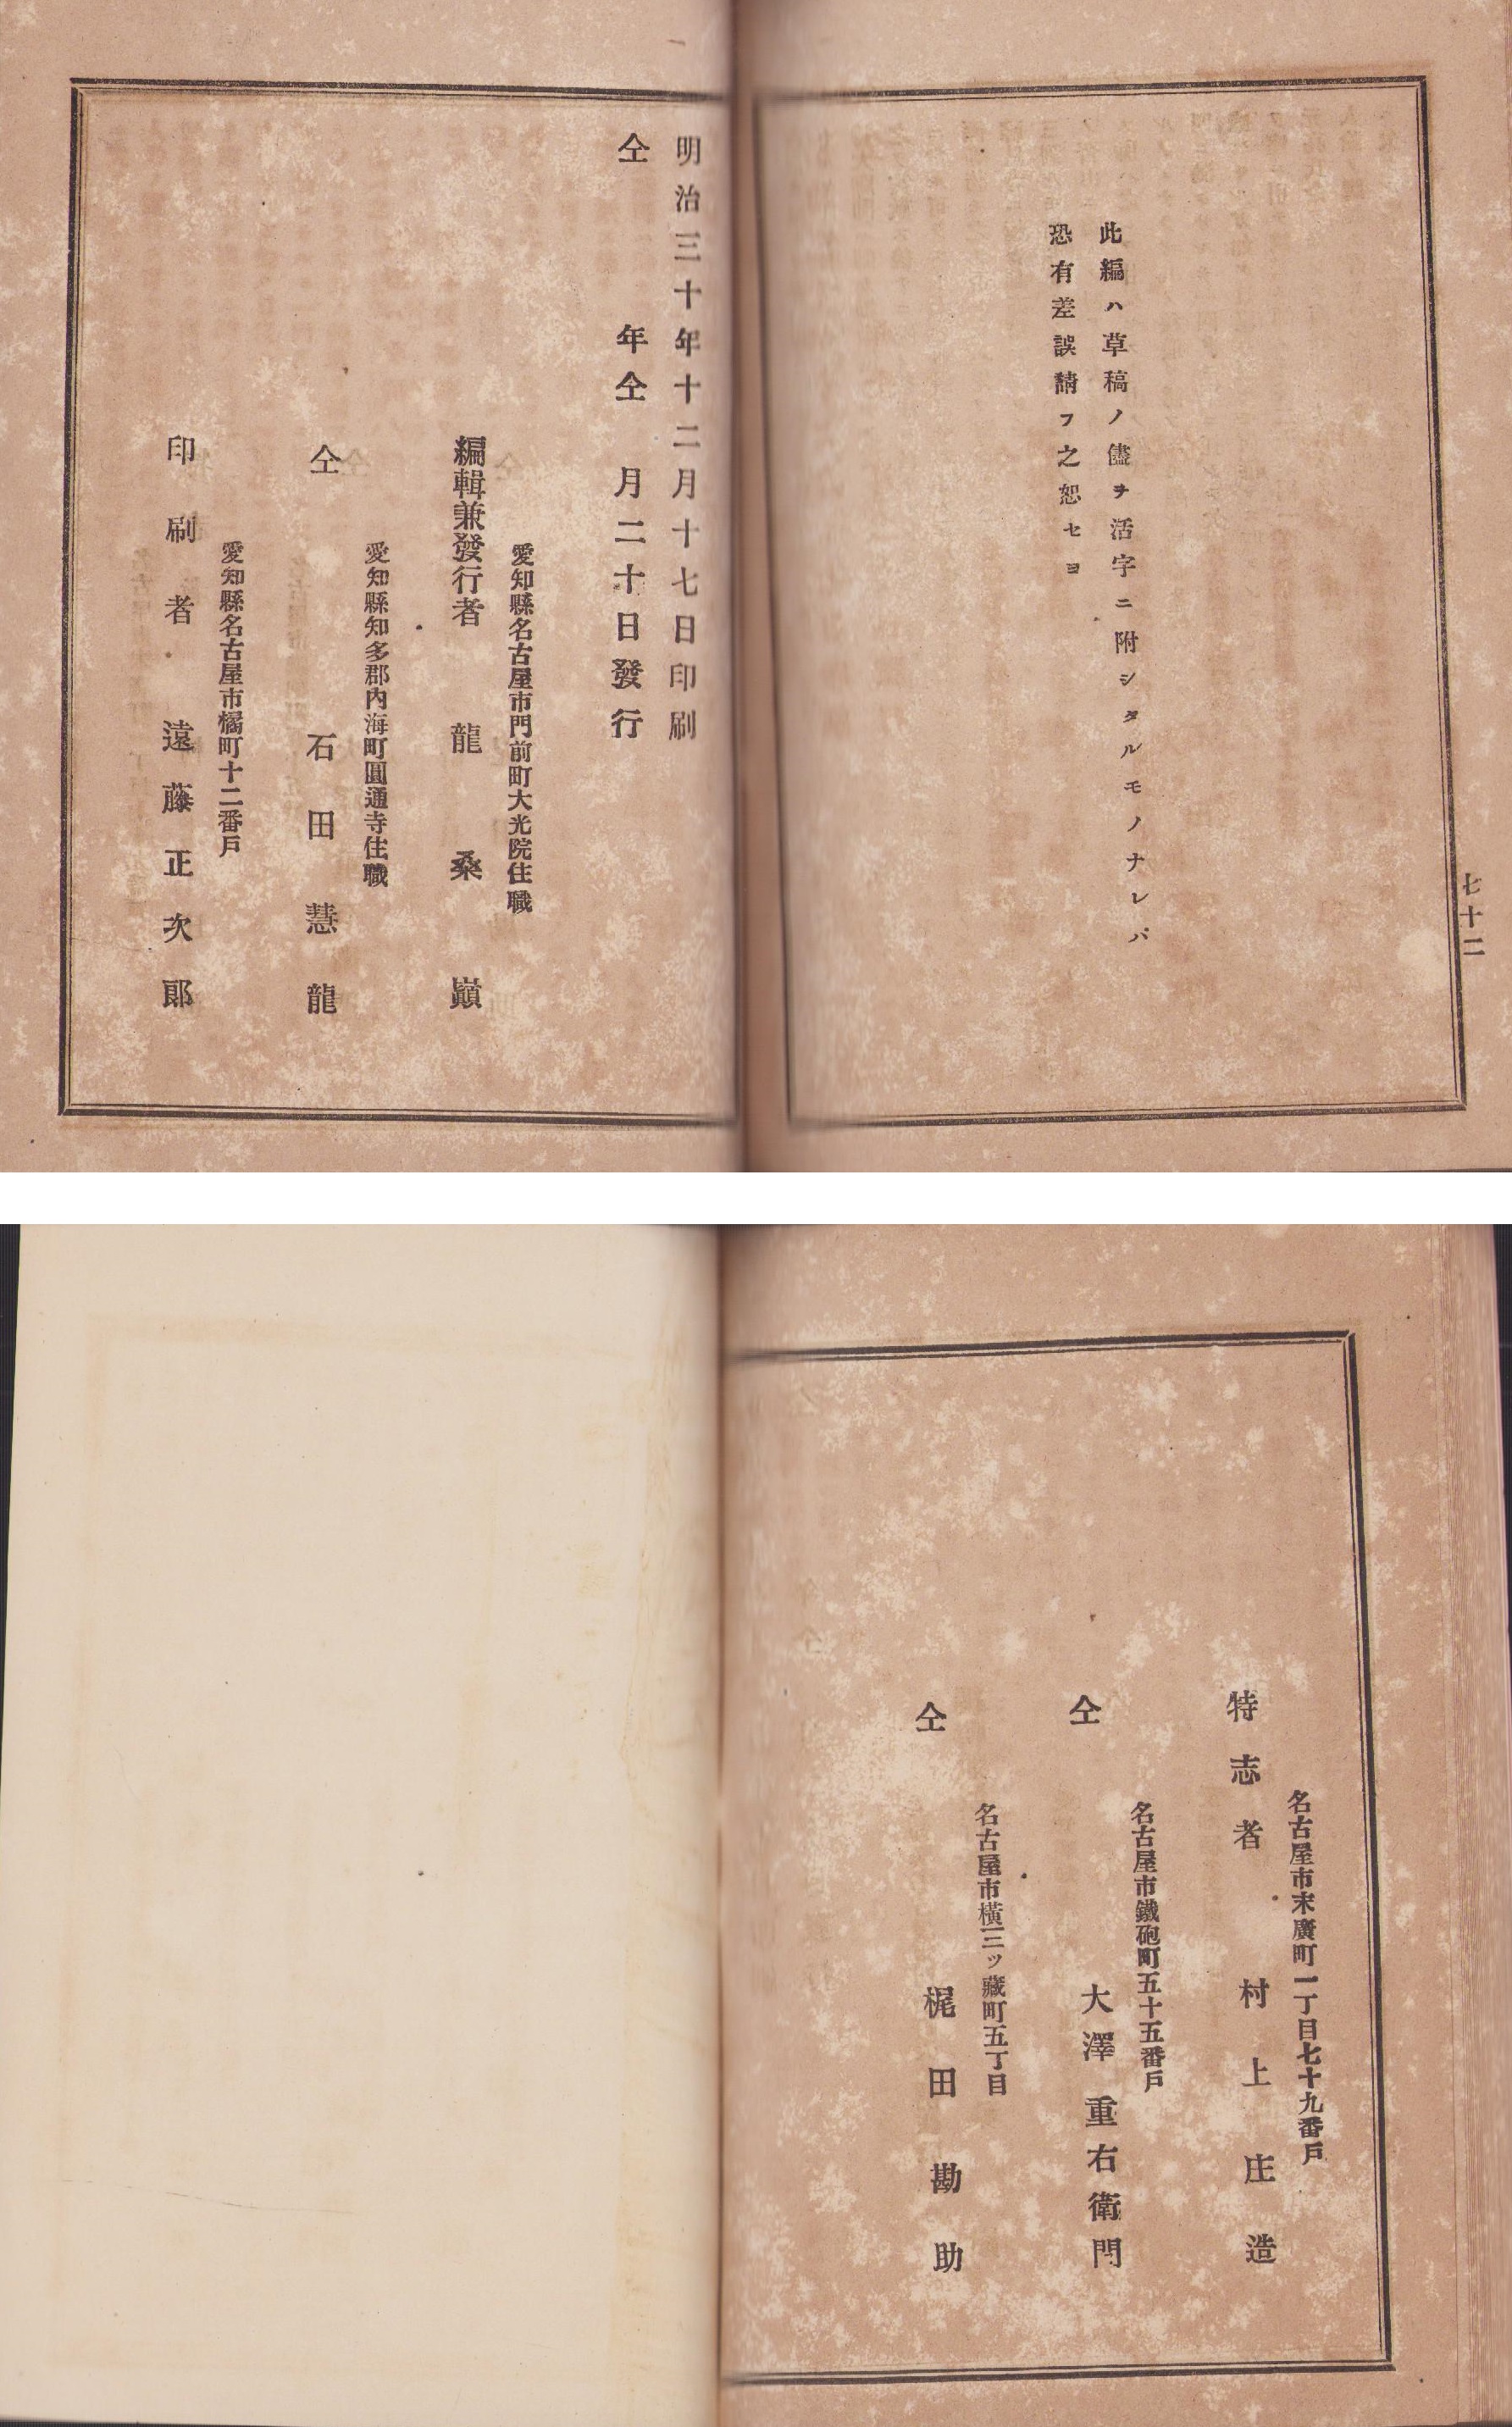 七十二
此編ハ草稿ノ儘ヲ活字ニ附シタルモノナレバ
恐有差誤請フ之恕セヨ
明治三十年十二月十七日印刷
仝年仝月二十日發行
愛知縣名古屋市門前町大光院住職
編輯兼發行者 龍桑巓
愛知縣知多郡內海町圓通寺住職
仝 石田慧龍
愛知縣名古屋市橘町十二番戶
印刷者 遠藤正次郎
名古屋市末廣町一丁目七十九番戶
特志者 村上庄造
名古屋市鐵砲町五十五番戶
仝 大澤重右衛門
名古屋市橫三ツ藏町五丁目
仝 梶田勘助